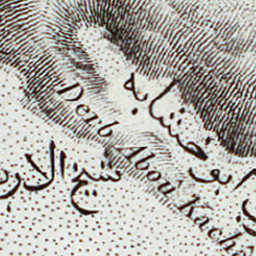 ابو خشابه
Derb Abou Kachâ
شيخ